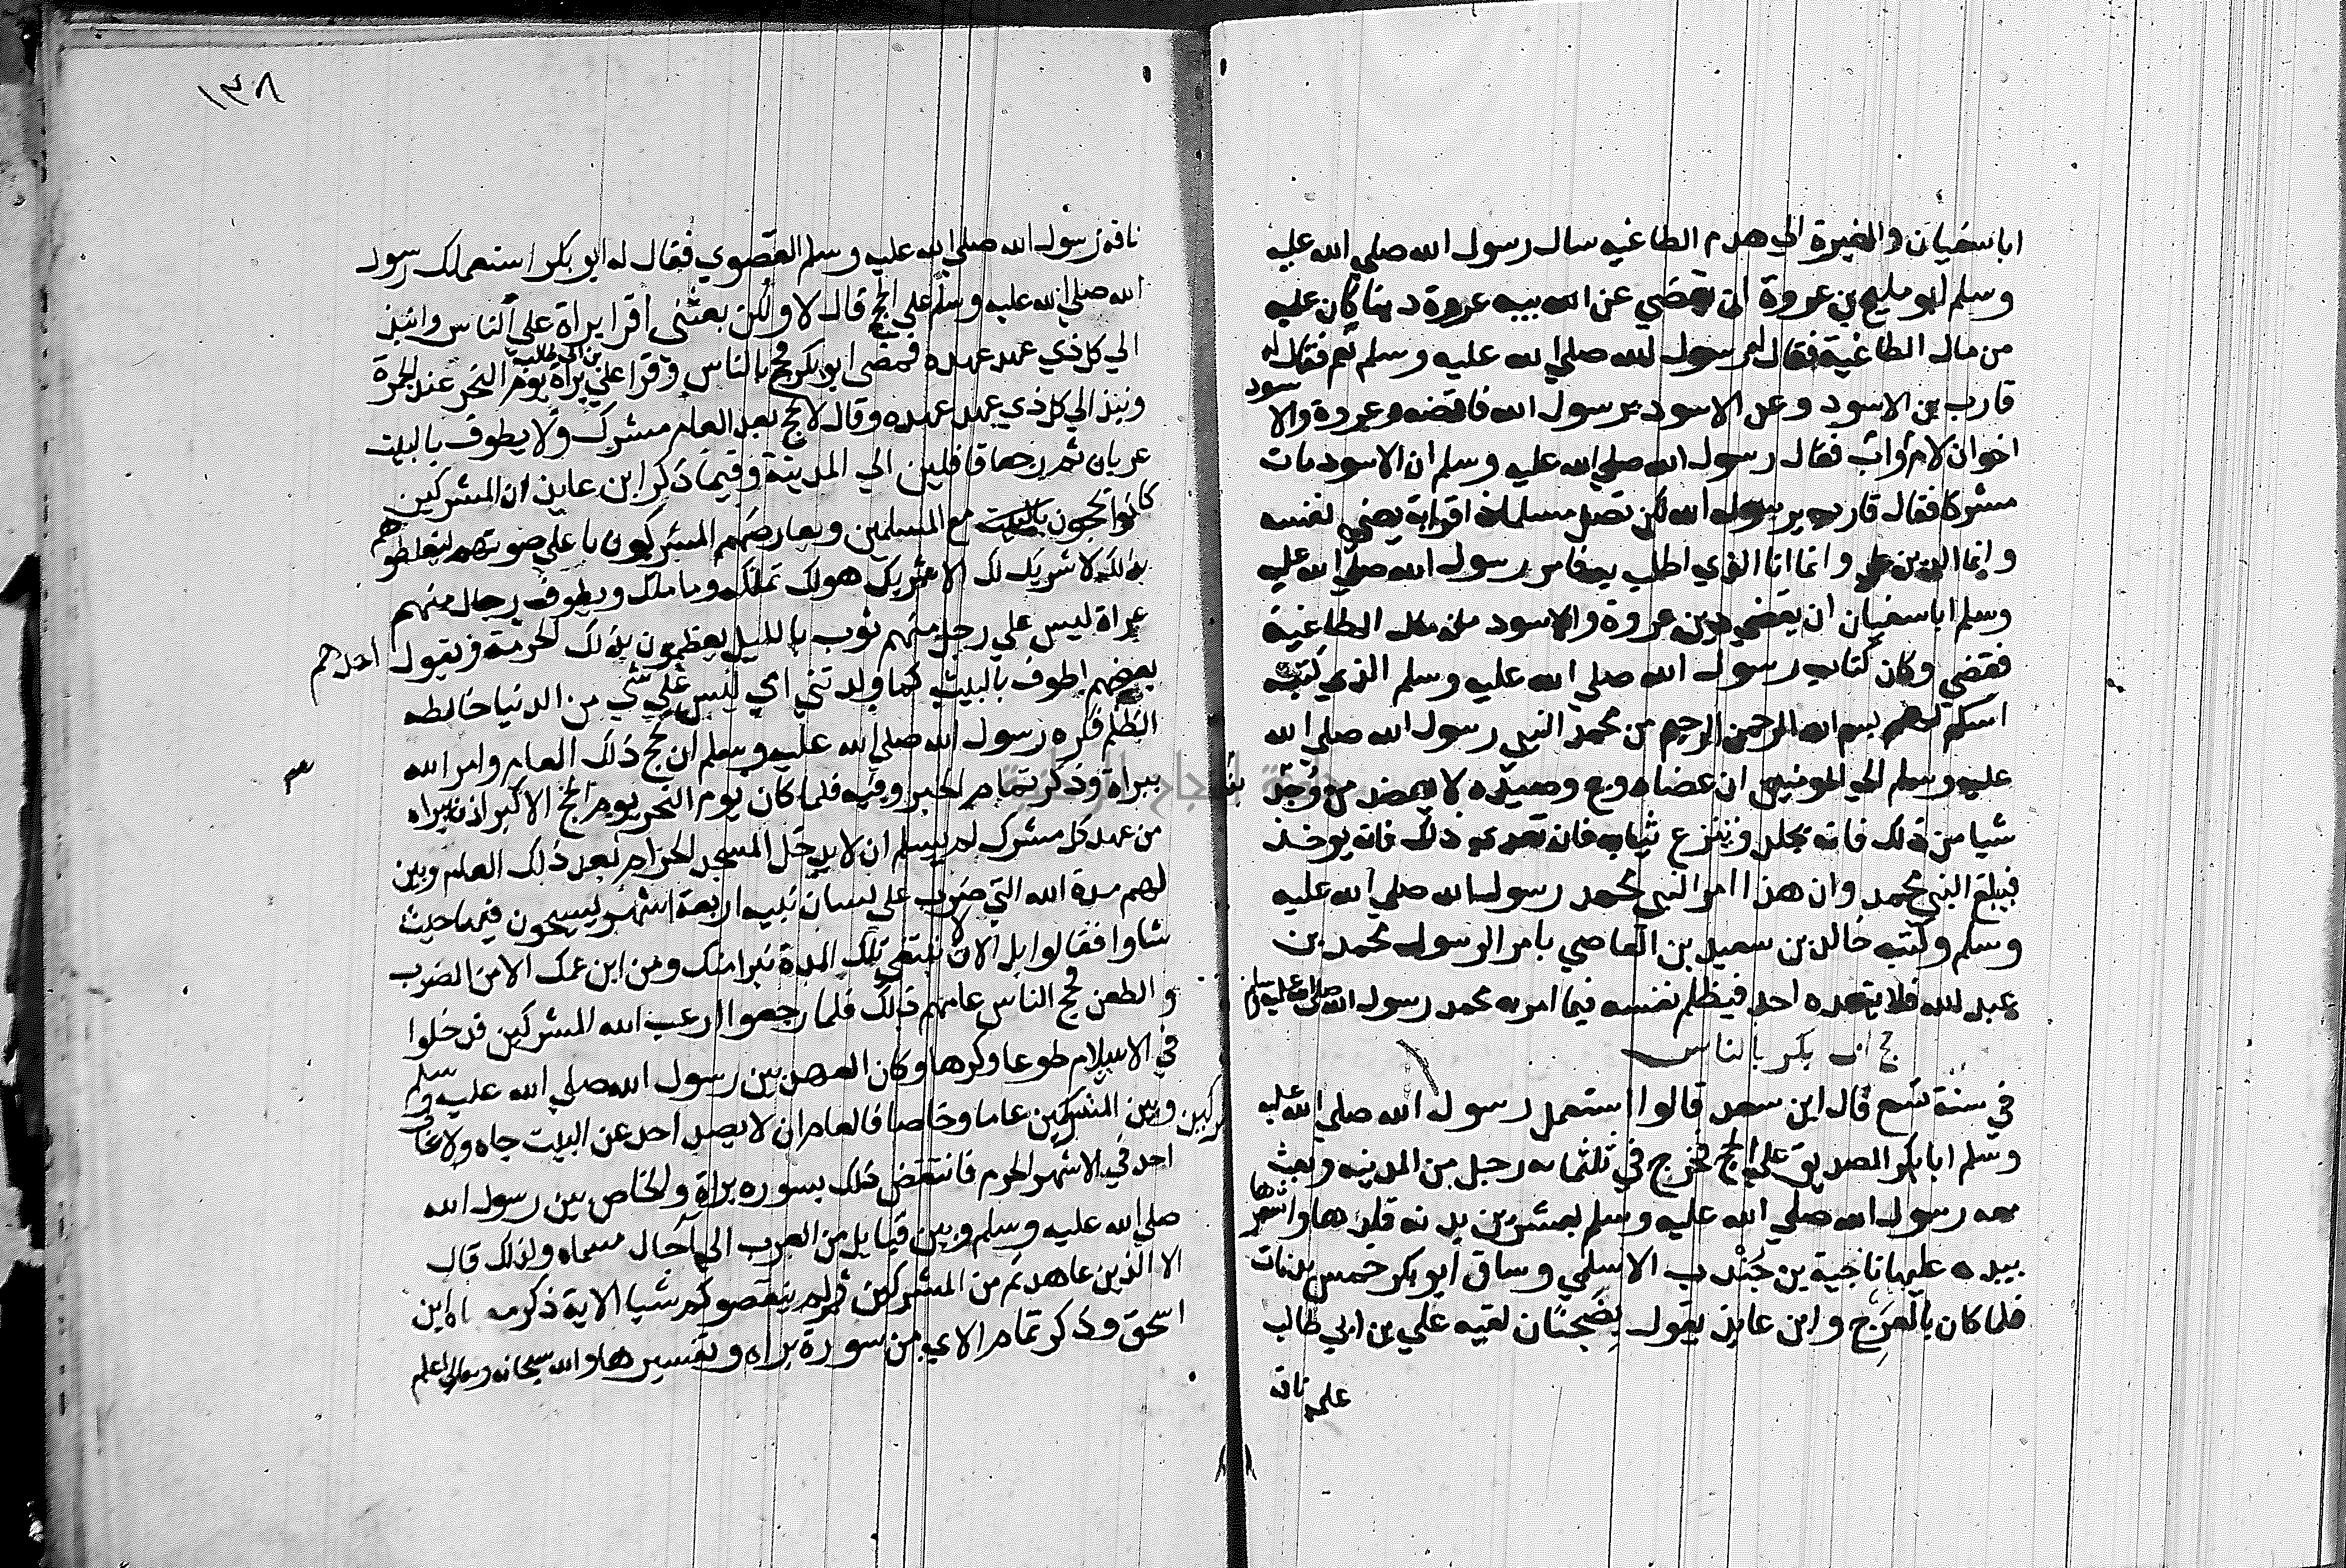 ابا سفيان والمغيرة الي هدم الطاغيه سال رسول الله صلي الله عليه
وسلم ابو مليح بن عروة ان يقضي عن ابيه عروة دينا كان عليه
من مال الطاغية فقال له رسول الله صلي الله عليه وسلم نعم فقال له
قارب بن الاسود وعن الاسود يرسول الله فاقضه وعروة والاسود
اخوان لام واب فقال رسول الله صلي الله عليه وسلم ان الاسود مات
مشركا فقال قارب يرسول الله لكن تصل مسلما ذا قرابة يعني نفسه
وانما الدين علي وانما انا الذي اطلب به فامر رسول الله صلي الله عليه
وسلم ابا سفيان ان يقضي دين عروة والاسود من مال الطاغية
فقضي وكان كتاب رسول الله صلي الله عليه وسلم الذي كتبه
لهم بسم الله الرحمن الرحيم من محمد النبي رسول الله صلي الله
عليه وسلم الي المومنين ان عضاه وج وصيده لا يعضد من وجد
شيا من ذلك فانه يجلد وينزع ثيابه فان تعدي ذلك فانه يوخذ
فيبلغ النبي محمد وان هذا امر النبي محمد رسول الله صلي الله عليه
وسلم وكتبه خالد بن سعيد بن العاصي بامر الرسول محمد بن
عبد الله فلا يتعده احد فيظلم نفسه فيما امر به محمد رسول الله صلي الله عليه وسلم
حج ابي بكر بالناس
في سنة تسع قال ابن سعد قالوا استعمل رسول الله صلي الله عليه
وسلم ابا بكر الصديق علي الحج فخرج في ثلثمايه رجل من المدينه وبعث
معه رسول الله صلي الله عليه وسلم بعشرين بدنه قلدها واشعرها
بيده عليها ناجية بن جُنْدب الاسلمي وساق ابو بكر خمس بدنات
فلما كان بالعَرْج وابن عايذ يقول بضَجنَان لقيه علي بن ابي طالب
علي ناقة
١٣٨
ناقة رسول الله صلي الله عليه وسلم القصوي فقال له ابو بكر استعملك رسول
الله صلي الله عليه وسلم علي الحج قال لا ولكن بعثني اقرا براة علي الناس وانبذ
الي كل ذي عهد عهده فمضي ابو بكر فحج بالناس وقرا علي بن ابي طالب براة يوم النحر عند الجمرة
ونبذ الي كل ذي عهد عهده وقال لا يحج بعد العام مشرك ولا يطوف بالبيت
عريان ثم رجعا قافلين الي المدينة وفيما ذكر ابن عايذ ان المشركين
كانوا يحجون مع المسلمين ويعارضهم المشركون باعلي صوتهم ليغلطوهم
بذلك لا شريك لك الا شريك هو لك تملكه وما ملك ويطوف رجال منهم
عراة ليس علي رجل منهم ثوب بالليل يعظمون بذلك الحرمة ويقول احدهم
بعضهم اطوف بالبيت كما ولدتني امي ليس علي شي من الدنيا خالطه
الظلم فكره رسول الله صلي الله عليه وسلم ان يحج ذلك العام وامر الله
ببراة وذكر تمام الخبر وفيه فلما كان يوم النحر يوم الحج الاكبر اذن ببراه
من عهد كل مشرك لم يسلم ان لا يدخل المسجد الحرام بعد ذلك العام وبين
لهم مدة الله التي ضرب علي لسان نبيه اربعة اشهر يسيحون فيها حيث
شاوا فقالوا بل الان لا نبتغي تلك المدة نبرا منك ومن ابن عمك الا من الضرب
والطعن فحج الناس عامهم ذلك فلما رجعوا ارعب الله المشركين فدخلوا
في الاسلام طوعا وكرها وكان العهد بين رسول الله صلي الله عليه وسلم
وبين المشركين عاما وخاصا فالعام ان لا يصد احد عن البيت جاه ولا يخاف
احد في الاشهر الحرم فانتقض ذلك بسوره براة والخاص بين رسول الله
صلي الله عليه وسلم وبين قبايل من العرب الي اجال مسماه ولذلك قال
الا الذين عاهدتم من المشركين ثم لم ينقصوكم شيا الاية ذكر معناه ابن
اسحق وذكر تمام الاي من سورة براه وتفسيرها والله سبحانه وتعالي اعلم